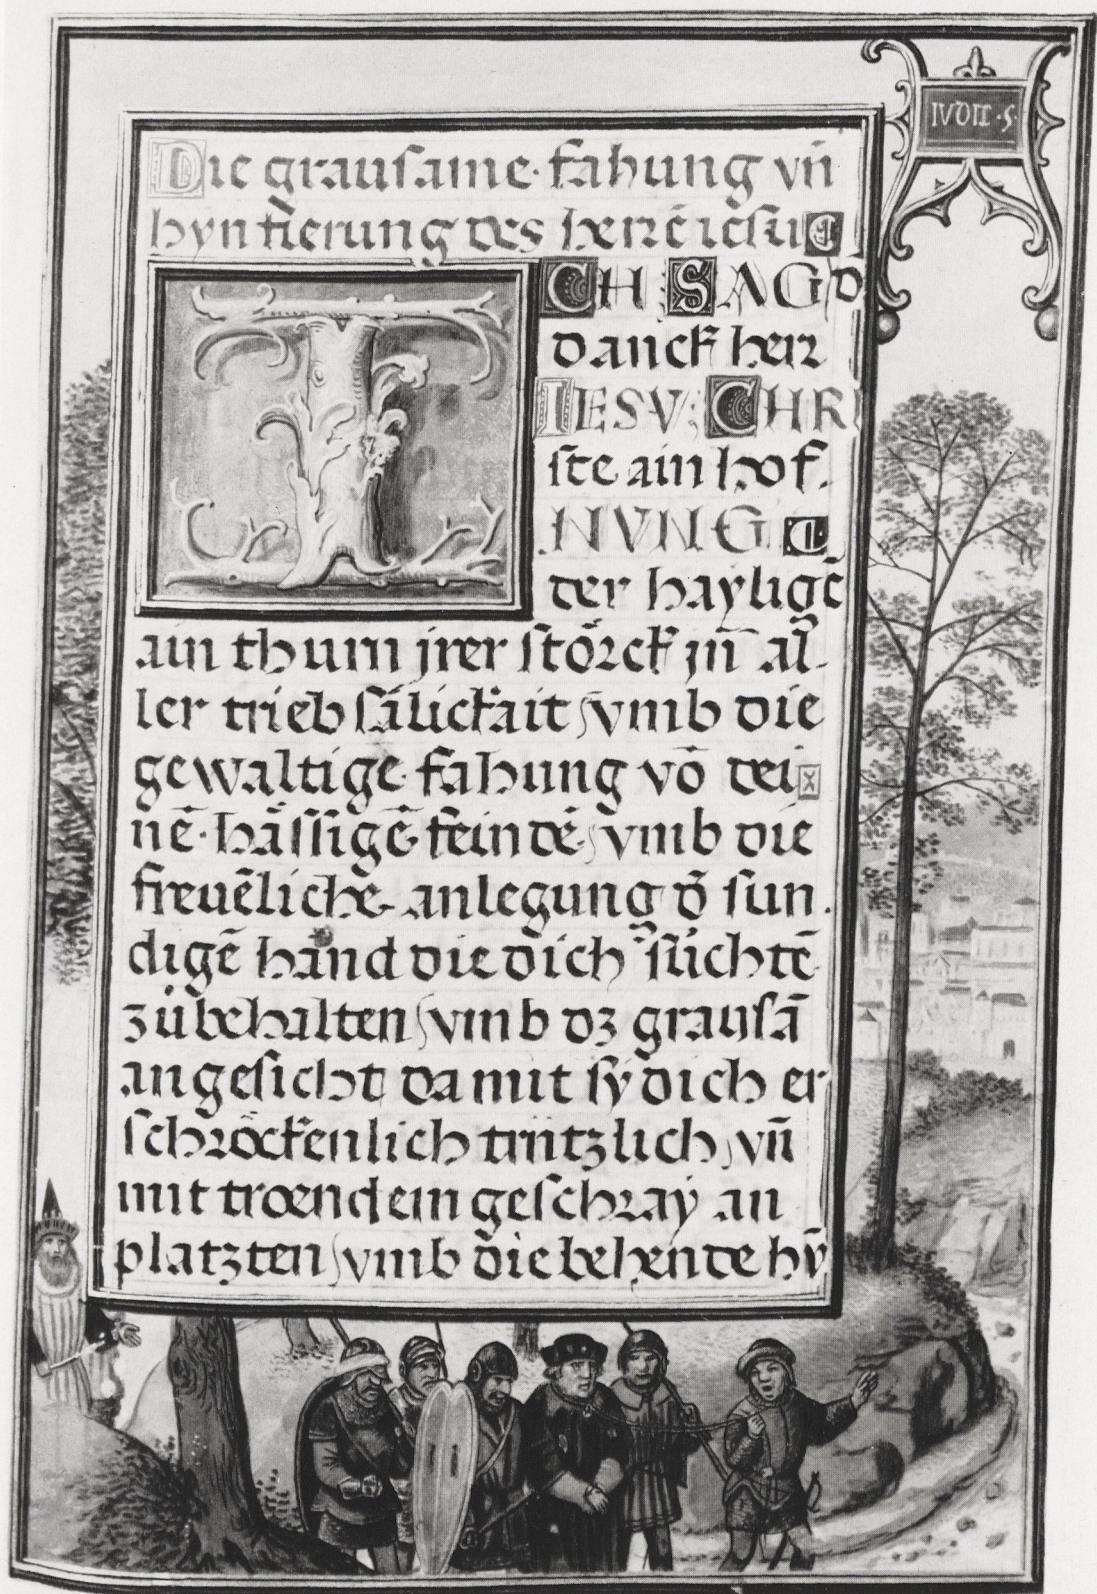 IVDIC·S·
Die grausame·fahung vn̄
hynfierung des herrē iesu
I CH SAG D
danck herr
IESV CHRI
ste ain hof·
NVNG
der hayligē
ain thurn jrer störck jn̄ al·
ler triebsälickait vmb die
gewaltige·fahung vō dei
nē·hässigē·feindē vmb die
freuēliche·anlegung d̄ sun·
digē händ die dich sůchtē
zůbehalten vmb dz grausā
angesicht damit sy dich er
schröckenlich trutzlich vn̄
mit troendem geschray an
platzten vmb die behende hȳ